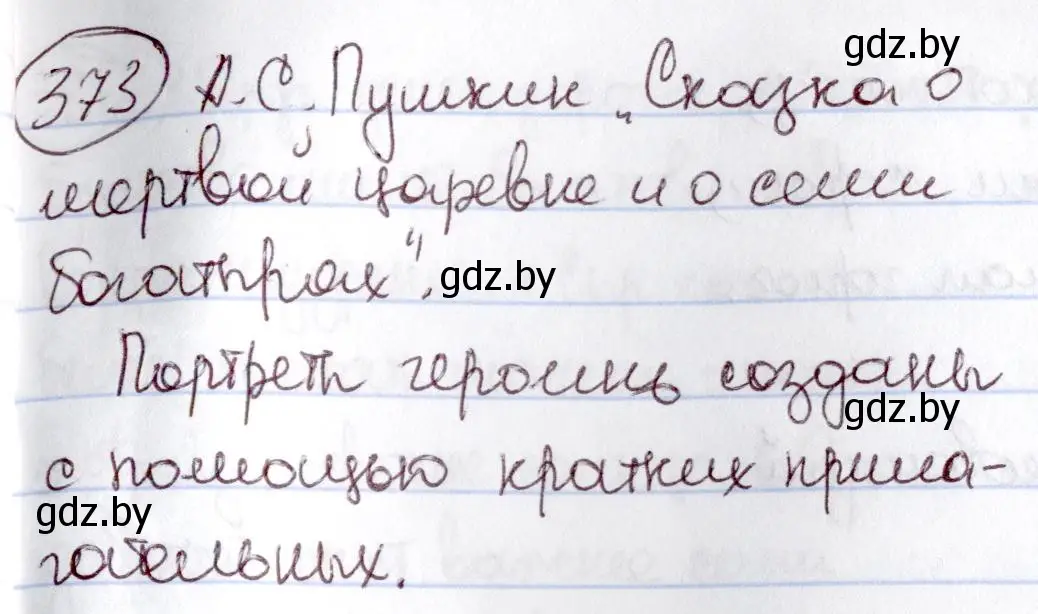 gdz.by
373 А.С. Пушкин „Сказка о
мертвой царевне и о семи
богатырях".
gdz.by
Портреты героинь созданы
gdz.by
с помощью кратких прила-
gdz.by
гательных.